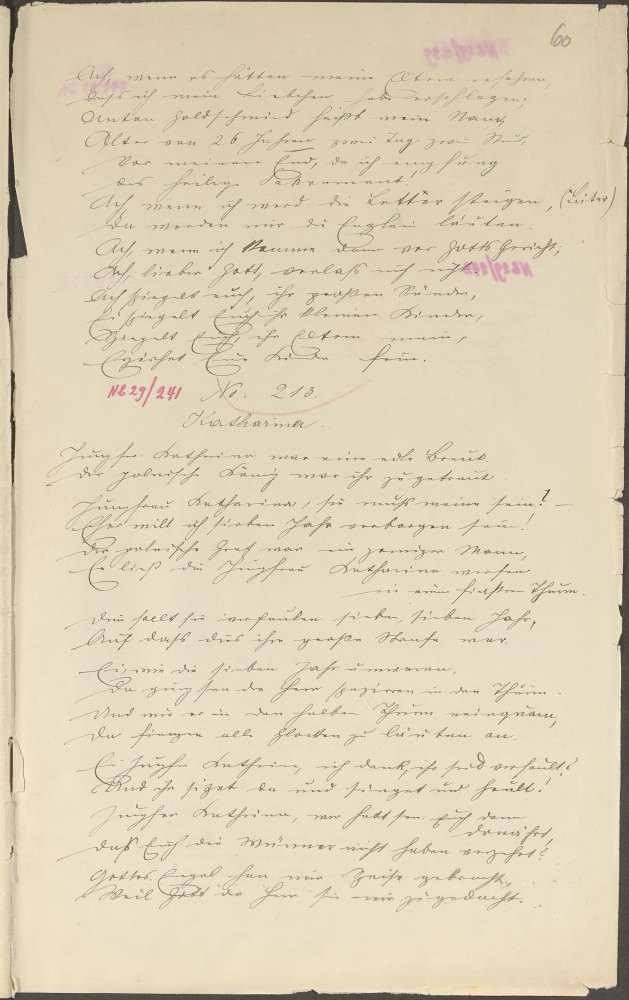 60
Ach, wenn es hätten meine Eltern erfahren,
Dass ich mein Liebchen hab erschlagen;
Anton Goldschmied heißt mein Nam,
Alter von 26 Jahren zwei Tag zwei Stund,
Vor meinem End, da ich empfung
das heilige Sakrament,
Ach wenn ich werd die Letter steigen, (Leiter)
Da werden mir die Englein läuten.
Ach, wenn ich komme dann vor Gotts Gericht;
Ach, lieber Gott, verlass mich nicht.
Ach spiegelt euch, ihr großen Sünder,
Ei spiegelt Euch ihr kleinen Kinder,
Spiegelt Euch, ihr Eltern mein,
Erziehet Eure Kinder fein.
NE 29/241 No: 213.
Katharina.
Jungfer Kathrina war eine edle Braut.
Der polnische König war ihr zugetraut.
Jungfrau Katharina, sie muss meine sein! –
Eher will ich sieben Jahr verborgen sein!
Der polnische Graf war ein zorniger Mann,
Er ließ die Jungfrau Katharina werfen
in einen finstren Thurm.
Drin sollt sie verfaulen sieben, sieben Jahr,
Auf dass dies ihre große Strafe war.
Ei, wie die sieben Jahr um waren,
Da ging der Herr spazieren in den Thurm.
Und wie er in den halben Thurm neinquam,
Da fiengen alle Glocken zu läuten an.
Ei Jungfer Kathrina, ich denk, ihr seid verfault?
Und ihr sizet da und singet und heult!
Jungfer Kathrina, wer hatt Euch denn
dernährt,
Daß Euch die Würmer nicht haben verzehrt?
Gottes Engel han mir Speise gebracht,
Weil Gott der Herr sie mir zugedacht.